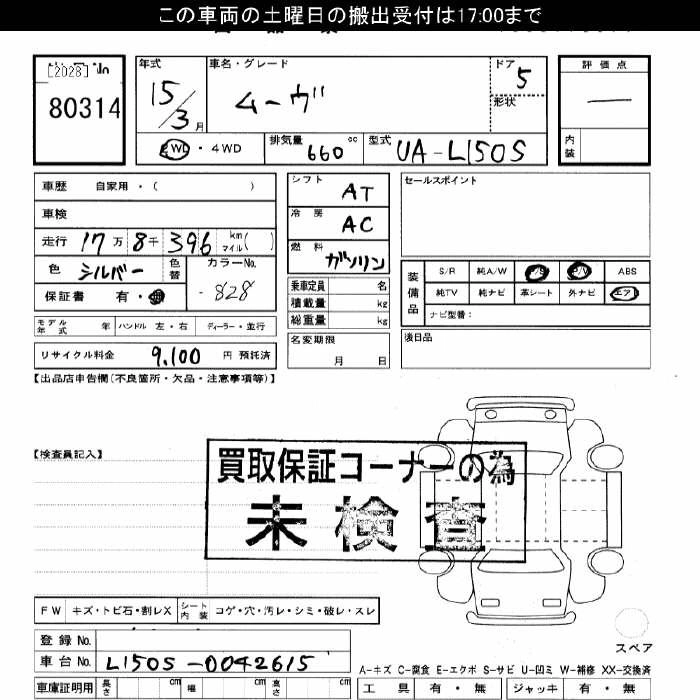 この車両の土曜日の搬出受付は17:00まで
[2028]
80314
年式
15/3月
車名・グレード
ムーヴ
ドア 5
形状
評価点
内装
2WD・4WD
排気量 660 cc
型式 UA-L150S
車歴 自家用・( )
車検
走行 17万8千396 km マイル( )
色 シルバー 色替
カラーNo. -828
保証書 有・
モデル年式 年 ハンドル 左・右 ディーラー・並行
リサイクル料金 9,100 円 預託済
シフト AT
冷房 AC
燃料 ガソリン
乗車定員 名
積載量 kg
総重量 kg
名変期限 月 日
セールスポイント
装備品
S/R 純A/W P/S P/W ABS
純TV 純ナビ 革シート 外ナビ エアB
ナビ型番:
後日品
【出品店申告欄(不良箇所・欠品・注意事項等)】
【検査員記入】
買取保証コーナーの為
未検査
FW キズ・トビ石・割レX シート内装 コゲ・穴・汚レ・シミ・破レ・スレ
スペア
登録No.
車台No. L150S-0042615
A-キズ C-腐食 E-エクボ S-サビ U-凹ミ W-補修 XX-交換済
車庫証明用 長さ cm 幅 cm 高さ cm
工具 有・無 ジャッキ 有・無